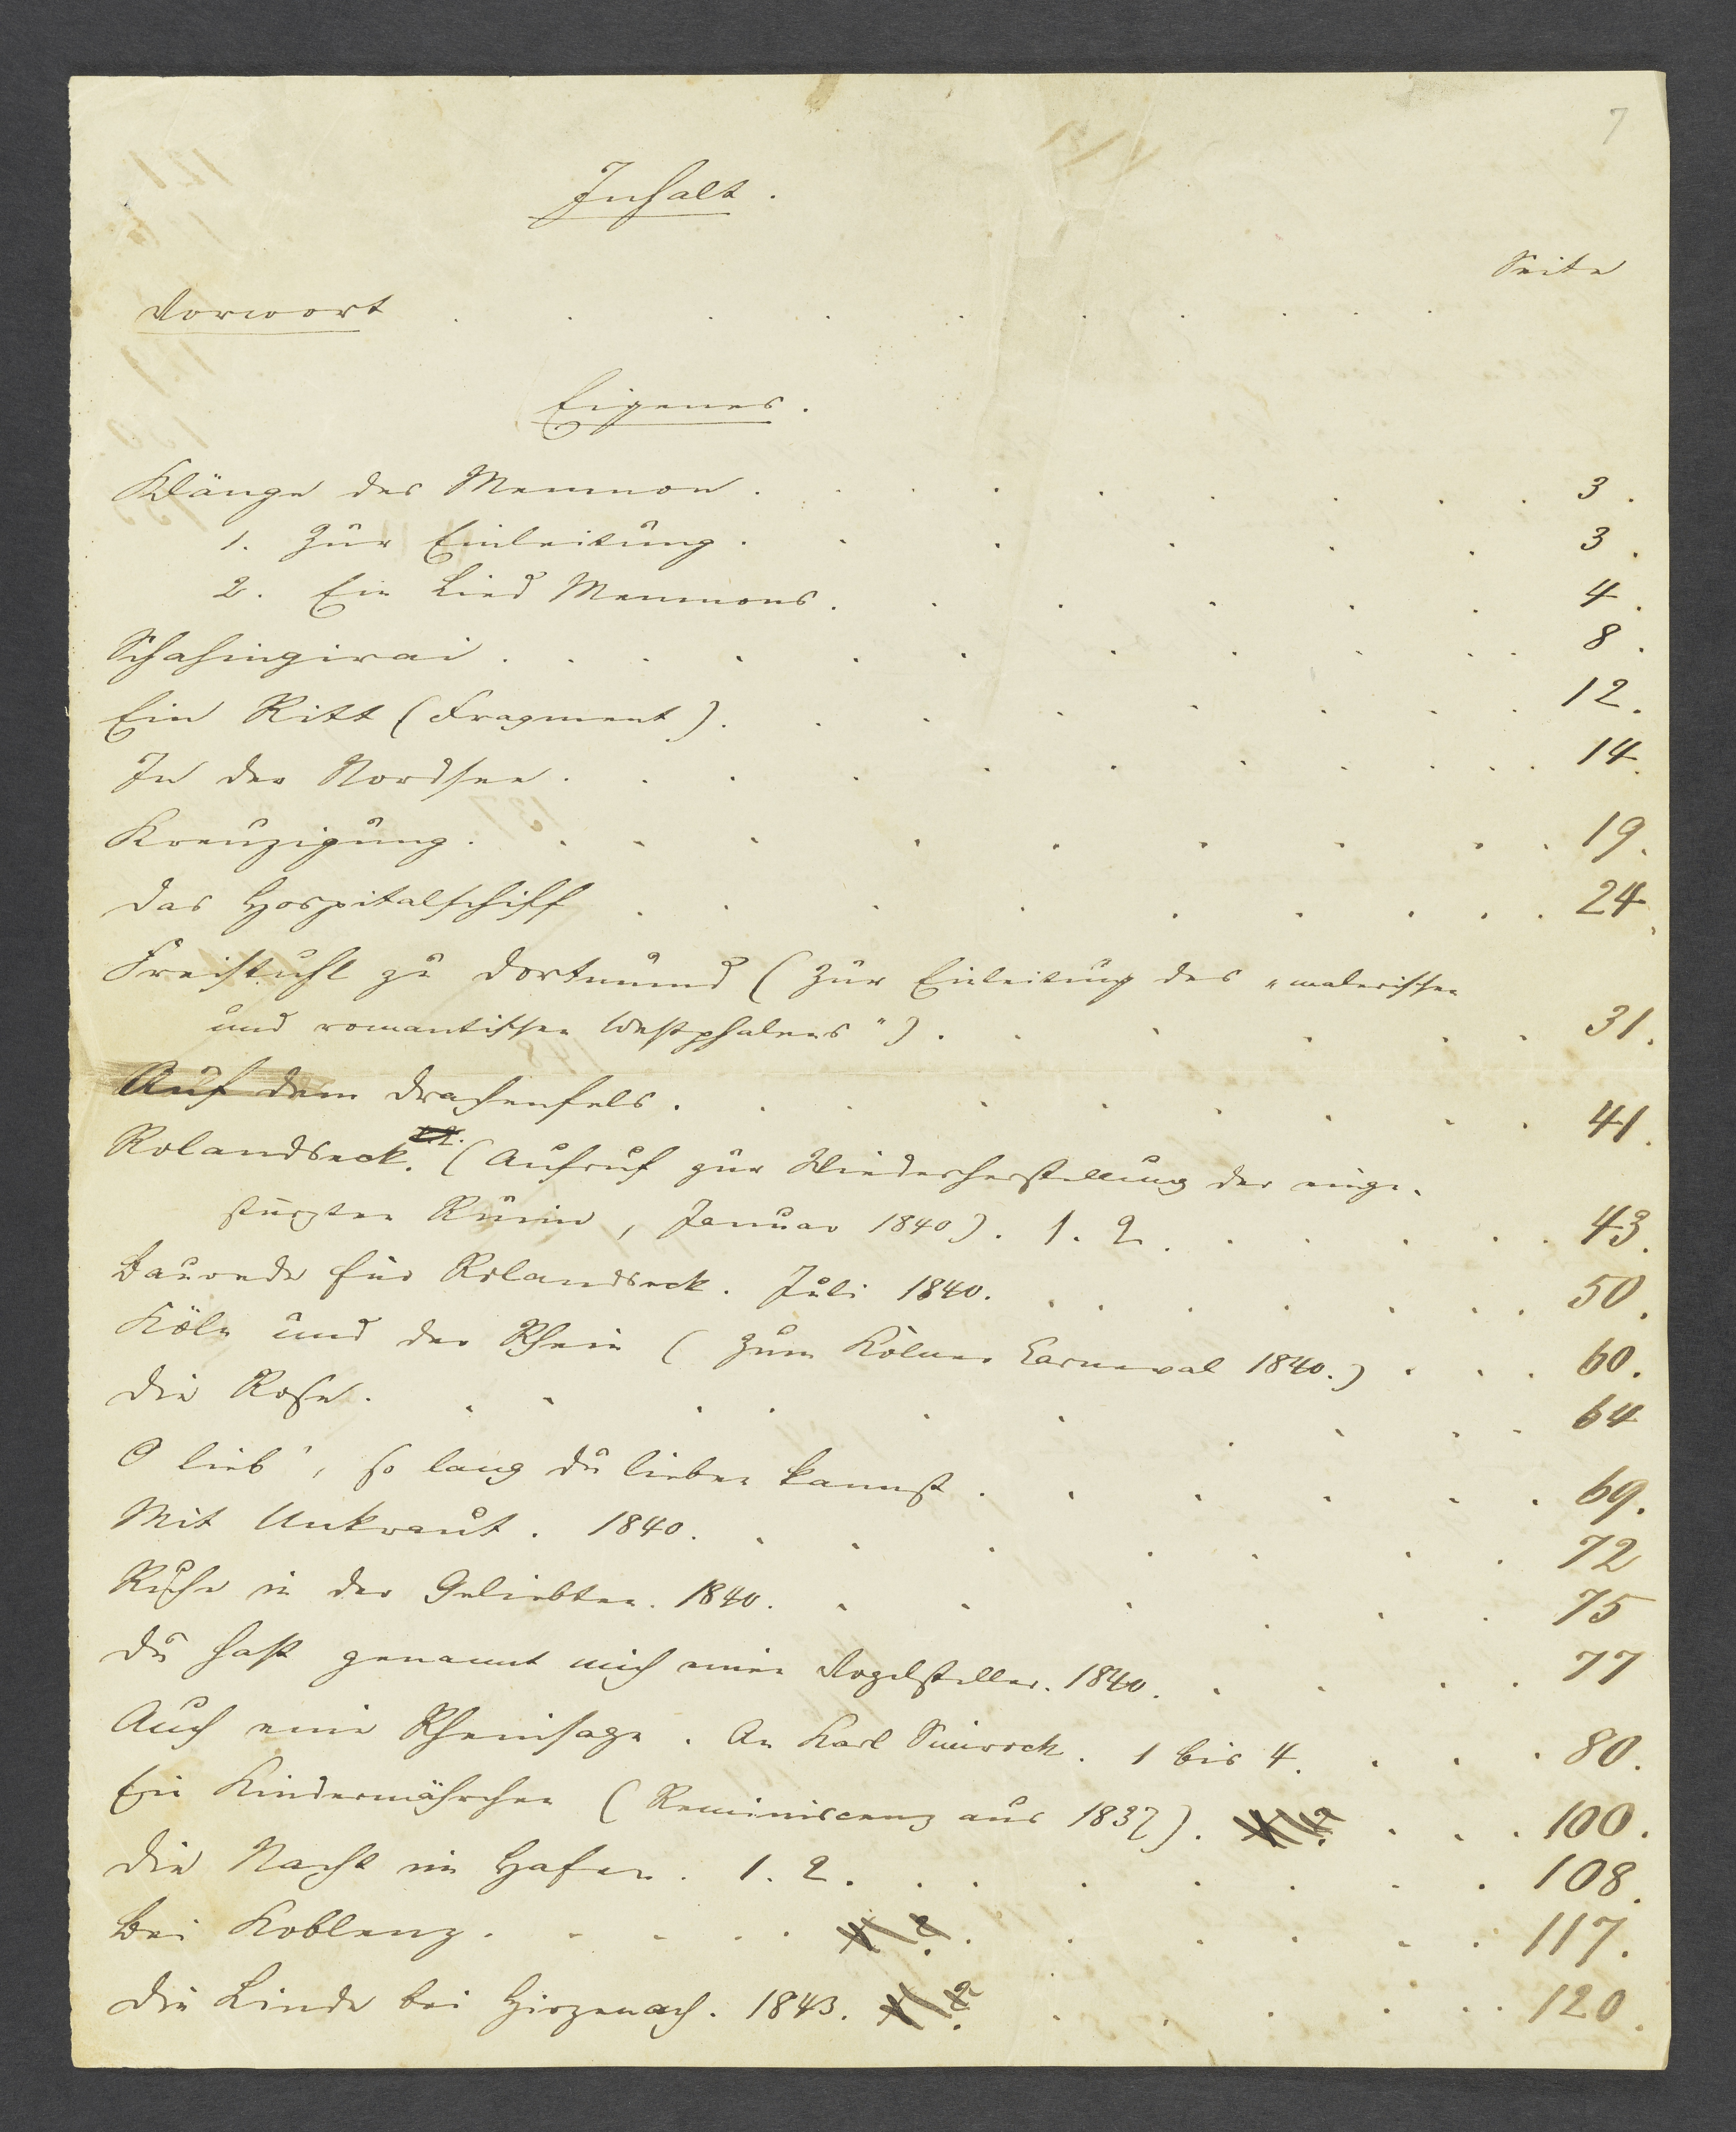 7
Inhalt.
Seite
Vorwort . . . . . . . . . .
Eigenes.
Klänge des Memnon . . . . . . . . 3.
1. Zur Einleitung . . . . . . 3.
2. Ein Lied Memnons . . . . . . 4.
Schahingirai . . . . . . . . . . . 8.
Ein Ritt (Fragment) . . . . . . . . 12.
In der Nordsee . . . . . . . . . . 14.
Kreuzigung . . . . . . . . . . 19.
Das Hospitalschiff . . . . . . . . . 24.
Freistuhl zu Dortmund (Zur Einleitung des „malerischen
und romantischen Westphalens") . . . . . . 31.
Auf dem Drachenfels . . . . . . . . . 41.
Rolandseck. (Aufruf zur Wiederherstellung der einge-
stürzten Ruine, Januar 1840). 1. 2 . . . . . . 43.
Baurede für Rolandseck. Juli 1840. . . . . . . . 50.
Köln und der Rhein (Zum Kölner Carneval 1840.) . . . 60.
Die Rose . . . . . . . . . . . 64
O lieb', so lang du lieben kannst . . . . . . 69.
Mit Unkraut. 1840. . . . . . . . 72
Ruhe in der Geliebten. 1840. . . . . . . 75
Du hast genannt mich einen Vogelsteller. 1840. . . . . 77
Auch eine Rheinsage. An Karl Simrock. 1 bis 4. . . . 80.
Ein Kindermährchen (Reminiscenz aus 1832). . . . 100.
Die Nacht im Hafen. 1. 2. . . . . . . . 108.
Bei Koblenz . . . . . . . . . . . 117.
Die Linde bei Hirzenach. 1843. . . . . . . 120.